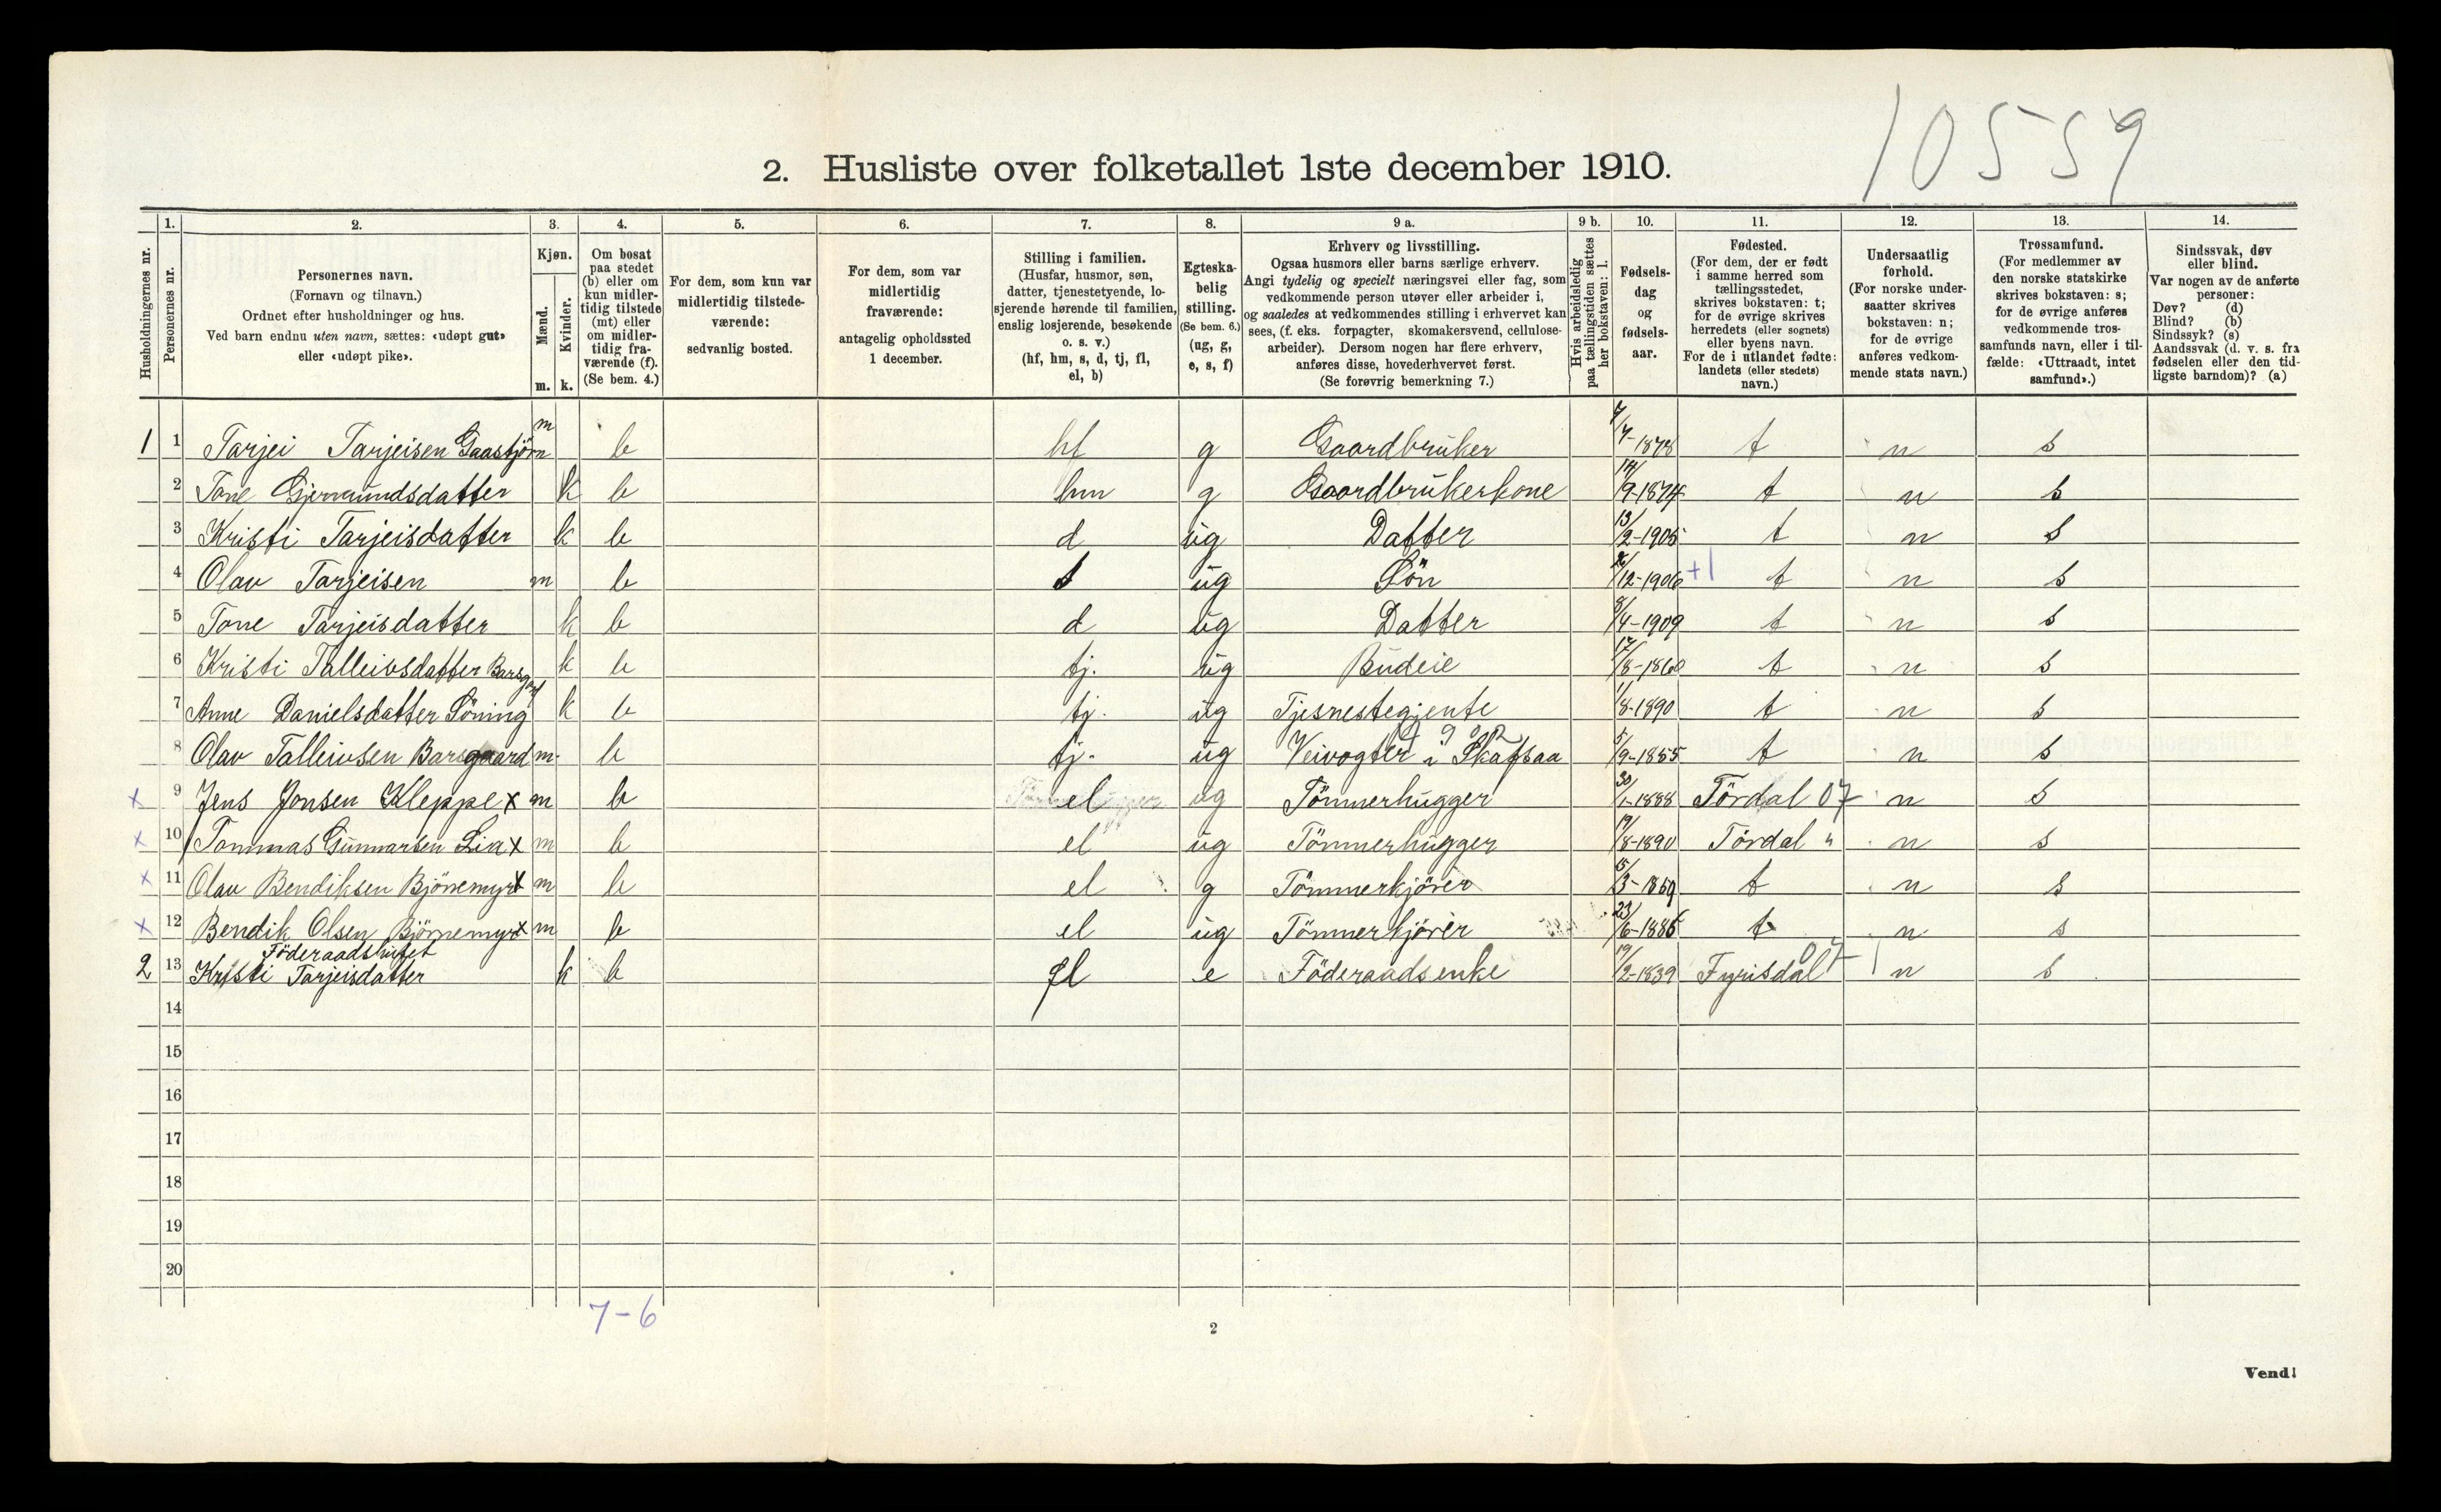 10559
2. Husliste over folketallet 1ste december 1910.
Husholdningernes nr.
1.
Personernes nr.
2.
Personernes navn.
(Fornavn og tilnavn.)
Ordnet efter husholdninger og hus.
Ved barn endnu uten navn, sættes: «udøpt gut»
eller «udøpt pike».
3.
Kjøn.
Mænd.
m.
Kvinder.
k.
4.
Om bosat
paa stedet
(b) eller om
kun midler-
tidig tilstede
(mt) eller
om midler-
tidig fra-
værende (f).
(Se bem. 4.)
5.
For dem, som kun var
midlertidig tilstede-
værende:
sedvanlig bosted.
6.
For dem, som var
midlertidig
fraværende:
antagelig opholdssted
1 december.
7.
Stilling i familien.
(Husfar, husmor, søn,
datter, tjenestetyende, lo-
sjerende hørende til familien,
enslig losjerende, besøkende
o. s. v.)
(hf, hm, s, d, tj, fl,
el, b)
8.
Egteska-
belig
stilling.
(Se bem. 6.)
(ug, g,
e, s, f)
9 a.
Erhverv og livsstilling.
Ogsaa husmors eller barns særlige erhverv.
Angi tydelig og specielt næringsvei eller fag, som
vedkommende person utøver eller arbeider i,
og saaledes at vedkommendes stilling i erhvervet kan
sees, (f. eks. forpagter, skomakersvend, cellulose-
arbeider). Dersom nogen har flere erhverv,
anføres disse, hovederhvervet først.
(Se forøvrig bemerkning 7.)
9 b.
Hvis arbeidsledig
paa tællingstiden sættes
her bokstaven: l.
10.
Fødsels-
dag
og
fødsels-
aar.
11.
Fødested.
(For dem, der er født
i samme herred som
tællingsstedet,
skrives bokstaven: t;
for de øvrige skrives
herredets (eller sognets)
eller byens navn.
For de i utlandet fødte:
landets (eller stedets)
navn.)
12.
Undersaatlig
forhold.
(For norske under-
saatter skrives
bokstaven: n;
for de øvrige
anføres vedkom-
mende stats navn.)
13.
Trossamfund.
(For medlemmer av
den norske statskirke
skrives bokstaven: s;
for de øvrige anføres
vedkommende tros-
samfunds navn, eller i til-
fælde: «Uttraadt, intet
samfund».)
14.
Sindssvak, døv
eller blind.
Var nogen av de anførte
personer:
Døv? (d)
Blind? (b)
Sindssyk? (s)
Aandssvak (d. v. s. fra
fødselen eller den tid-
ligste barndom)? (a)
1 1 Tarjei Tarjeisen Gaastjörn m b hf g Gaardbruker 7/4-1878 t n s
2 Tone Gjermundsdatter k b hm g Gaardbrukerkone 14/9-1874 t n s
3 Kristi Tarjeisdatter k b d ug Datter 13/2-1905 t n s
4 Olav Tarjeisen m b s ug Sön /12-1906 +1 t n s
5 Tone Tarjeisdatter k b d ug Datter 8/4-1909 t n s
6 Kristi Talleivsdatter Barsgard k b tj. ug Budeie 17/8-1860 t n s
7 Anne Danielsdatter Söning k b tj. ug Tjesnestegjente 1/8-1890 t n s
8 Olav Talleivsen Barsgaard m. b tj. ug Veivogter i Skafsaa 5/9-1855 t n s
x 9 Jens Jonsen Kleppe x m b el ug Tömmerhugger 30/1-1888 Tördal 07 n s
x 10 Tommas Gunnarsen Lia x m b el ug Tömmerhugger 19/8-1890 Tördal " n s
x 11 Olav Bendiksen Björnemyr x m b el g Tömmerkjörer 15/3-1859 t n s
x 12 Bendik Olsen Björnemyr x m b el ug Tömmerkjörer 23/6-1886 t n s
Föderaadshuset
2 13 Kristi Tarjeisdatter k b fl e Föderaadsenke 19/2-1839 Fyrisdal 07 n s
14
15
16
17
18
19
20
7-6
2
Vend!